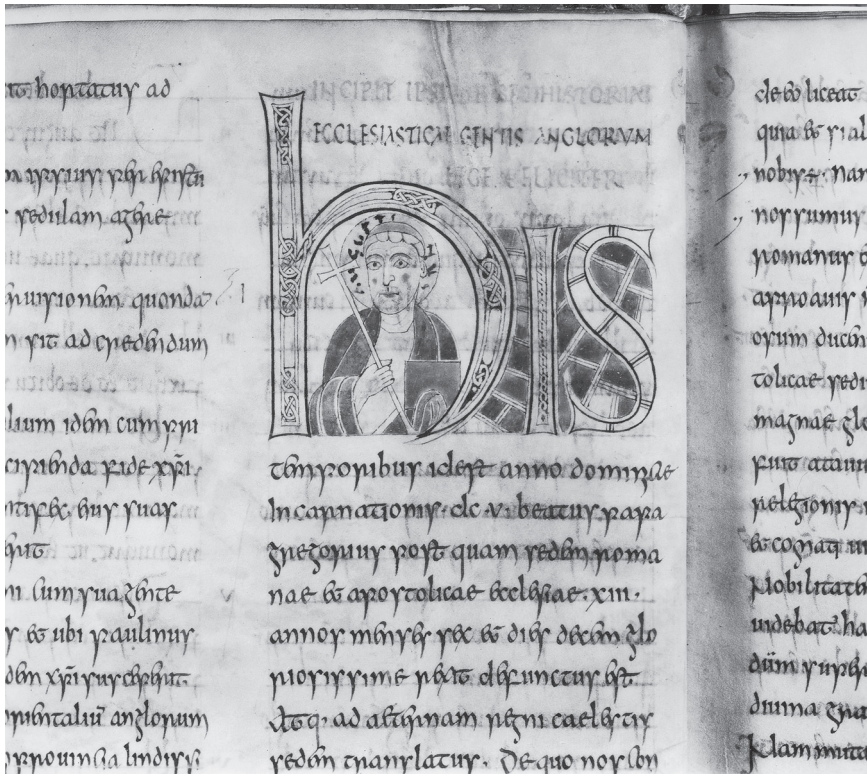 hortatus ad
sedulam agere
uisionem quonda
sit ad credendum
lium idem cum pri
cipienda fide xpi.
fuit
et ubi paulinus
dem xpi suscepit
orientaliu anglorum
prouincia lindissi
INCIPIT
ECCLESIASTICAE GENTIS ANGLORVM
AUGUSTINUS
hIS
temporibus id est anno dominicae
Incarnationis · dc · v · beatus papa
gregorius post quam sedem roma
nae et apostolicae ecclesiae · xiii ·
annos menses sex et dies decem glo
riosissime rexit defunctus est
Atq· ad aeternam regni caelestis
sedem translatus · De quo nos con
de eo liceat
quia et si al
nobis ÷ nam
nos sumus
romanus
a proauis
orum ducen
tolicae sedi
magnae glo
fuit atauus
religionis
et cognati
Nobilitate
uidebat ha
dum super
diuina gra
Nam muta